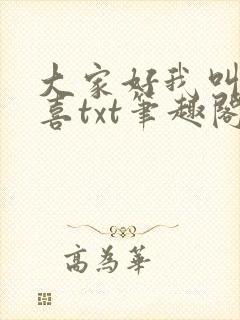 大家好我叫
喜txt笔趣阁
高为华